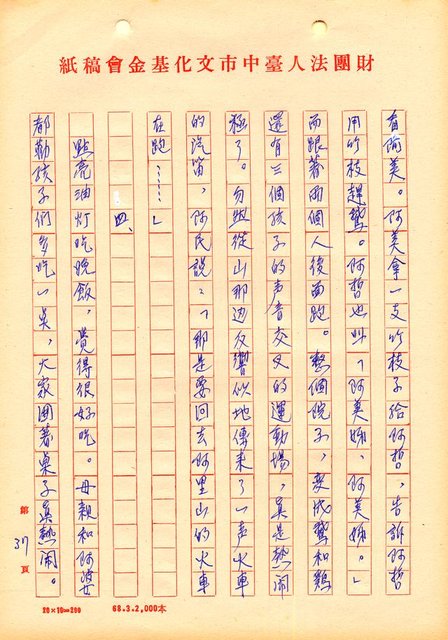 財團法人臺中市文化基金會稿紙
有阿美。阿美拿一支竹枝子給阿哲,告訴阿哲
用竹枝趕鵞。阿哲也叫「阿美姊、阿美姊。」
而跟著兩個人後面跑。整個院子,变成鵞和鷄
還有三個孩子的声音交叉的運動場,真是熱鬧
極了。勿然從山那边反響似地傳来了一声火車
的汽笛,阿民說:「那是要回去阿里山的火車
在跑……」
四、
點亮油灯吃晚飯,覺得很好吃。母親和阿婆
都勸孩子們多吃一点,大家圍著桌子真熱鬧。
第 37 頁
20×10=200
68.3.2,000本